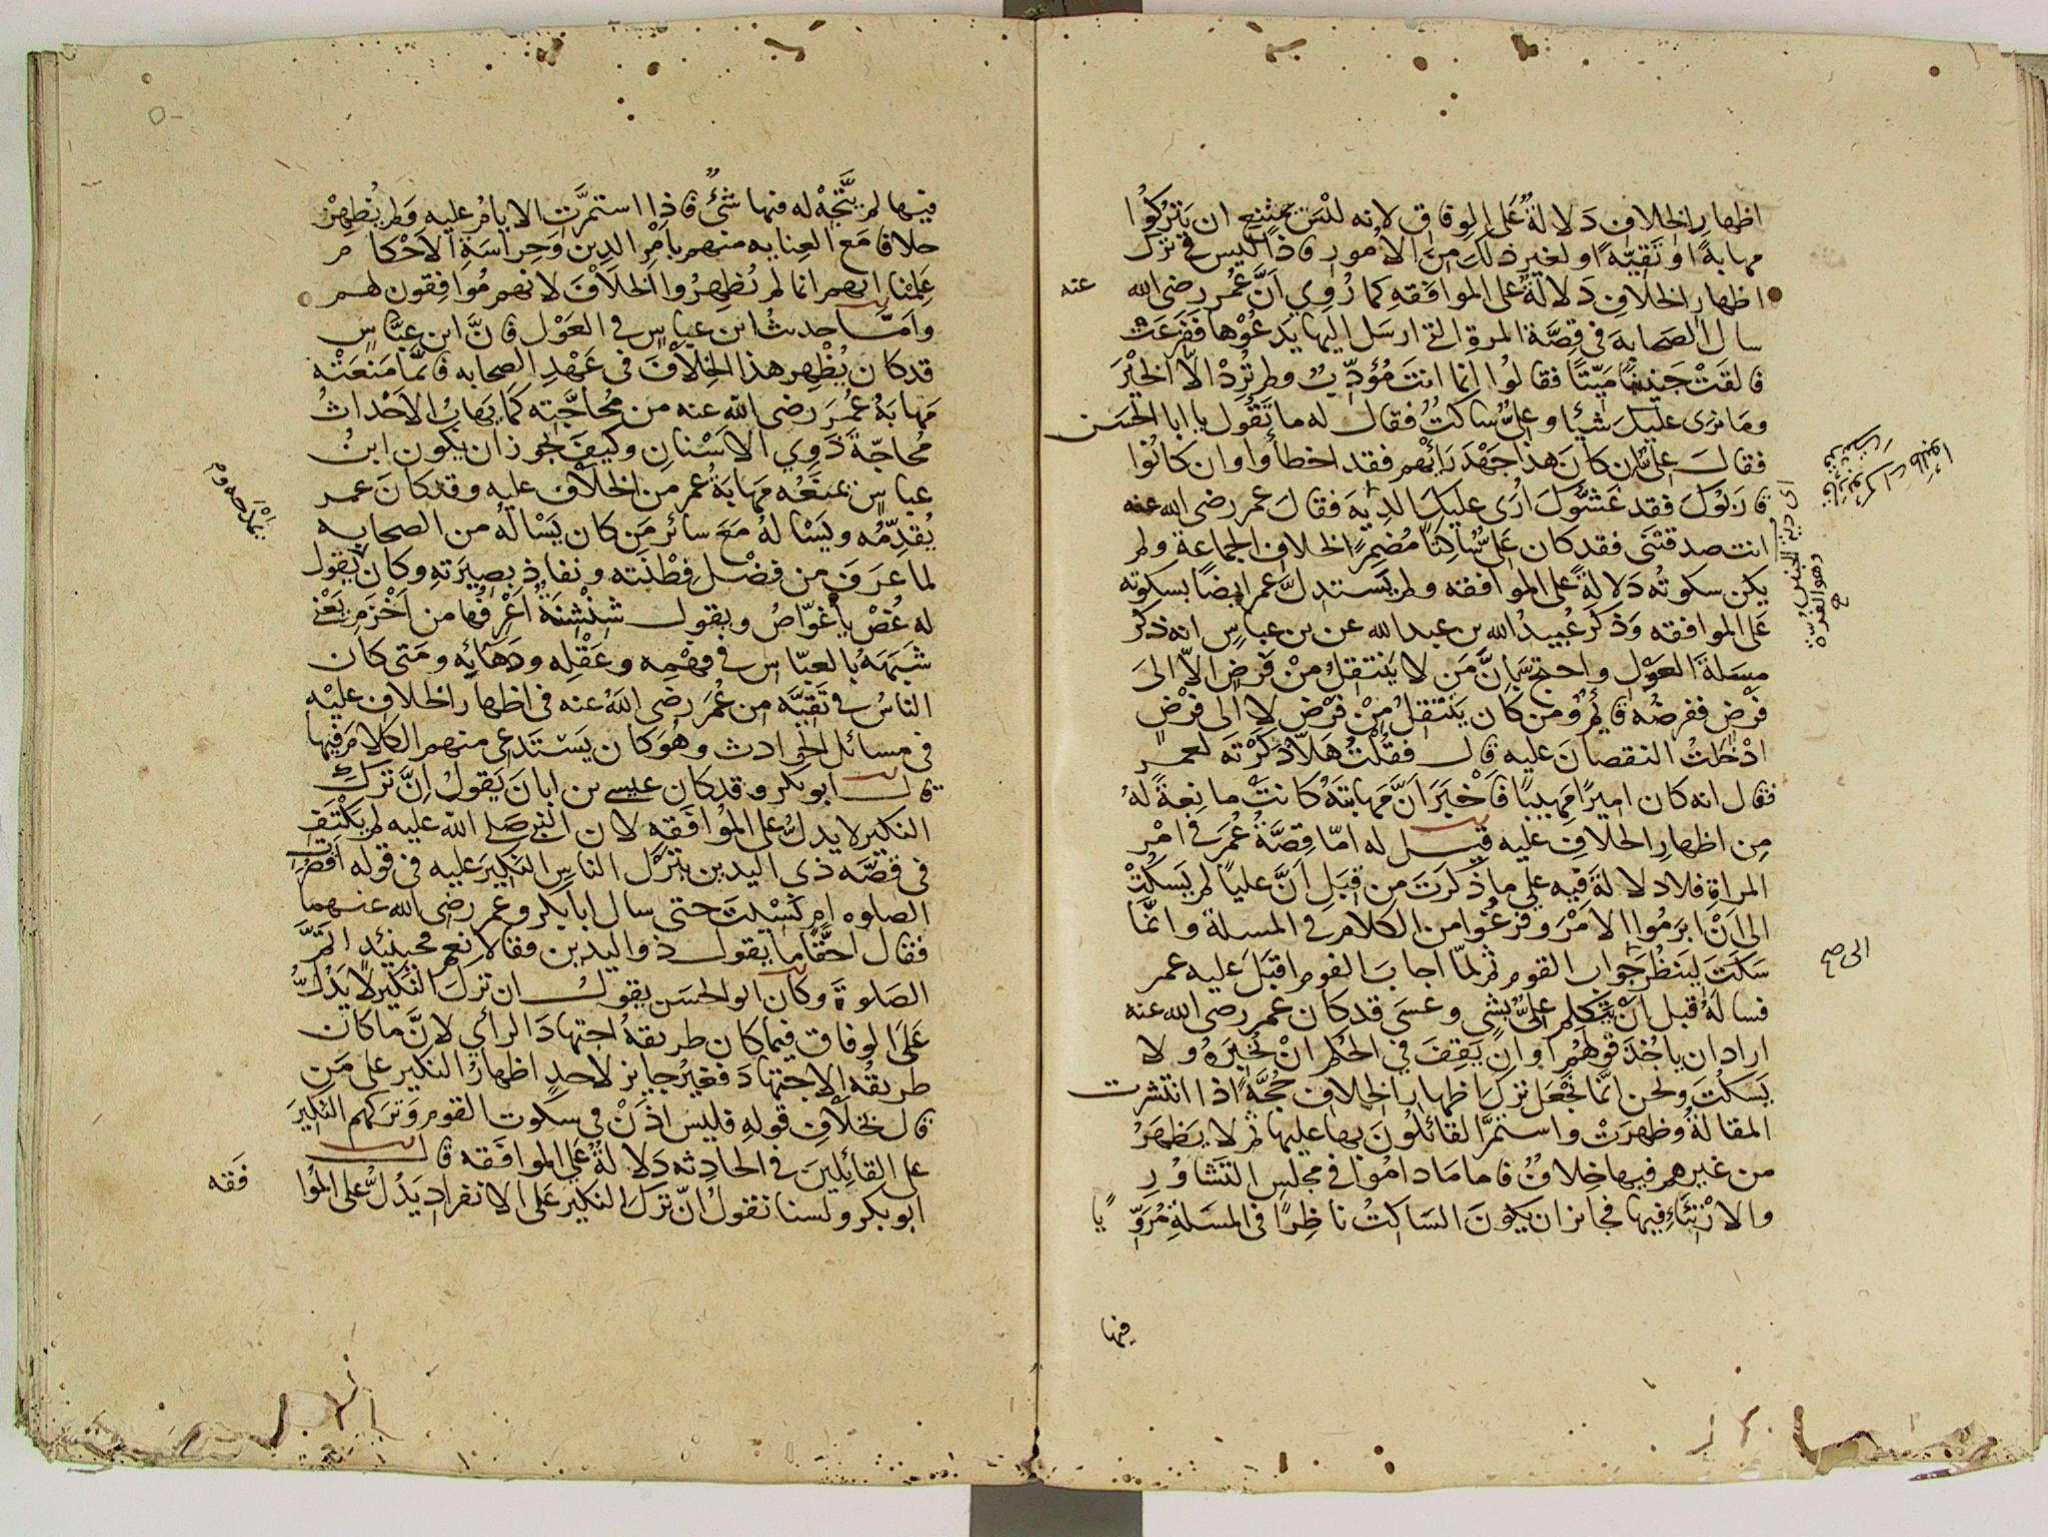 اظهار الخلاف دَلالةٌ عَلَى الوِفاق لانه ليْسَ يمتنع ان يَتْرُكُوا
مهابةً او تَقِيّةً او لغير ذلك مِن الأمور فاذًا ليس في ترك
اظهار الخلاف دَلالةٌ على الموافقه كما رُوِي اَنَّ عُمَر رضى الله عنه
سال الصَحابة في قِصَّة المرة التي ارسَل اليها يَدعُوْها ففَزِعَتْ
فالقَتْ جَنِينًا مَيّتًا فقالوا اِنما انتَ مُؤَدِّبٌ ولم تُرِدْ الّا الخيْرَ
ومَا نرى عليكَ شَيْئا وعليٌّ ساكتٌ فقال له ما تَقُول يا ابا الحسَن
فقالَ عليٌّ اِن كانَ هذا جَهْدَ رَأْيِهم فقد اخطأُوا وان كانُوا
قارَبُوكَ فقد غَشُّوكَ اَرَى عليكَ الدِيَة فقالَ عمر رضى الله عنه
انت صدقتنى فقد كان عَليٌّ ساكتًا مُضمِرًا لخلاف الجماعة ولم
يكن سكوتُه دَلالةً على الموافقه ولم يَستدلَّ عمر ايضًا بسكوته
عَلى الموافقه وَذكَر عُبيدُ الله بن عبد الله عن بن عباسٍ انه ذكر
مسَلةَ العَوْل واحتج بِاَنَّ مَن لا يَنتقِلُ مِنْ فَرضٍ الاّ الىَ
فَرْضٍ ففرضُه قائمٌ ومن كان يَنْتقلُ مِنْ فَرْضٍ لا الى فرْضٍ
ادْخَلتُ النقصانَ عليه قال فقُلْتُ هَلّا ذكَرْتَه لعمر
فقال انه كان اميرًا مَهيبًا فَأَخْبَرَ اَنَّ مَهابتَهُ كانتْ مانِعةً لهُ
مِن اظهارِ الخلافِ عليه قيل له امّا قِصَّةُ عُمَر في امْر
المراةِ فلا دلالةَ فيه على ما ذَكرتَ من قِبَلِ اَنَّ عليًا لم يَسكُتْ
الى اَنْ ابرَمُوا الامْرَ وفرغُوا من الكلام في المسلة وانّما
سَكَتَ ليَنظُر جَواب القوم ثم لمّا اجابَ القوم اقبَلَ عليه عمر
فسالَهُ قبل اَنْ يتكلم عليٌّ بشي وعسَى قد كان عمر رضى الله عنه
اراد ان ياخُذَ بقولهم او ان يَقِفَ في الحُكْم اَنْ يُخْبِرَهُ ولا
يَسكُتَ ونحن انّما نَجْعَل تَرْكَ اظهار الخلاف حُجَّةً اذا انتشرت
المقالةُ وظهرَتْ واستمرَّ القائلُونَ بها عليها ثم لا يَظهَرُ
من غيرهم فيها خِلافٌ فاما مَا دامُوا في مجلس التَشاوُرِ
والارْتِئاءِ فيها فجائز ان يكونَ السَاكتُ ناظِرًا في المسَلةِ مُرَوّيًا
فيها
اى دية الجنين
وهو الغرة
الى صح
فيها لم يتَّجِهْ له فيها شئٌ فاذا استمرَّت الايامُ عليه ولم يُظهِرْ
خلافا مَع العِنايه منهم بامْرِ الدِين وَحِراسَةِ الاَحْكام
عَلِمْنا انهم انما لم يُظهِرُوا الخلافَ لانهم مُوافِقون لهم
وامّا حديثُ ابن عباسٍ في العَوْل فانَّ ابن عبّاسٍ
قد كان يُظْهِر هذا الخِلافَ في عَهْدِ الصحابه فانّما مَنَعَتْه
مَهابةُ عُمَرَ رضى الله عنه من مُحاجَّتِه كما يَهابُ الاَحْداثُ
مُحاجّةَ ذَوِي الاسْنانِ وكيفَ يجوز ان يكون ابنُ
عباسٍ يمنَعُه مَهابةُ عُمر من الخلاف عليه وقد كانَ عمر
يُقدِّمُه ويَسْالهُ مَعَ سائر مَن كان يَسْالهُ من الصحابه
لما عرَفَ من فضْلِ فِطْنَته ونفاذِ بصِيرَتهِ وكان يقول
له غُصْ يا غوّاصُ ويقول شِنْشِنةٌ اَعْرِفُها من اَخْزَمِ يَعْنى
شَبَهَهُ بالعبّاس في فهْمِه وعَقْلِه ودَهائِه ومَتى كان
الناسُ في تَقِيَّه من عُمَر رضى الله عنه في اظهار الخلاف عليْه
في مسائل الحوادث وهُوَ كان يَسْتَدعِى منهم الكلامَ فيها
قال ابو بكر وقد كان عيسى بن ابانَ يَقولُ اِنَّ تَرْكَ
النكير لا يدلُّ على المُوافَقه لان النبي صَلى الله عليه لم يَكْتَفِ
في قصّه ذى اليدين بتَرْكِ الناسِ النَكِيرَ عليه في قوله اَقَصُرَتِ
الصلوه ام نَسِيتَ حتى سال ابا بكر وعمر رضى الله عنهما
فقال اَحَقًّا ما يقول ذو اليدين فقالا نعم فحينئِذٍ اتمَّ
الصَلوةَ وكان ابو الحسَن يقول ان ترْكَ النكير لا يَدُلُّ
عَلَى الوفاق فيما كان طريقهُ اجتهادَ الرأي لانَّ ما كان
طريقُه الاجتهادَ فغيرُ جايز لاحدٍ اظهارُ النكير على مَن
قال بخلافِ قولهِ فليس اذَنْ في سكوت القوم وَتركهم النكيرَ
على القائلِينَ في الحادِثه دَلالةٌ على الموافَقه قال
ابو بكر ولسنا نقولُ انّ تَرْكَ النكير عَلى الانفراد يَدُلُّ على المُوا
فَقه